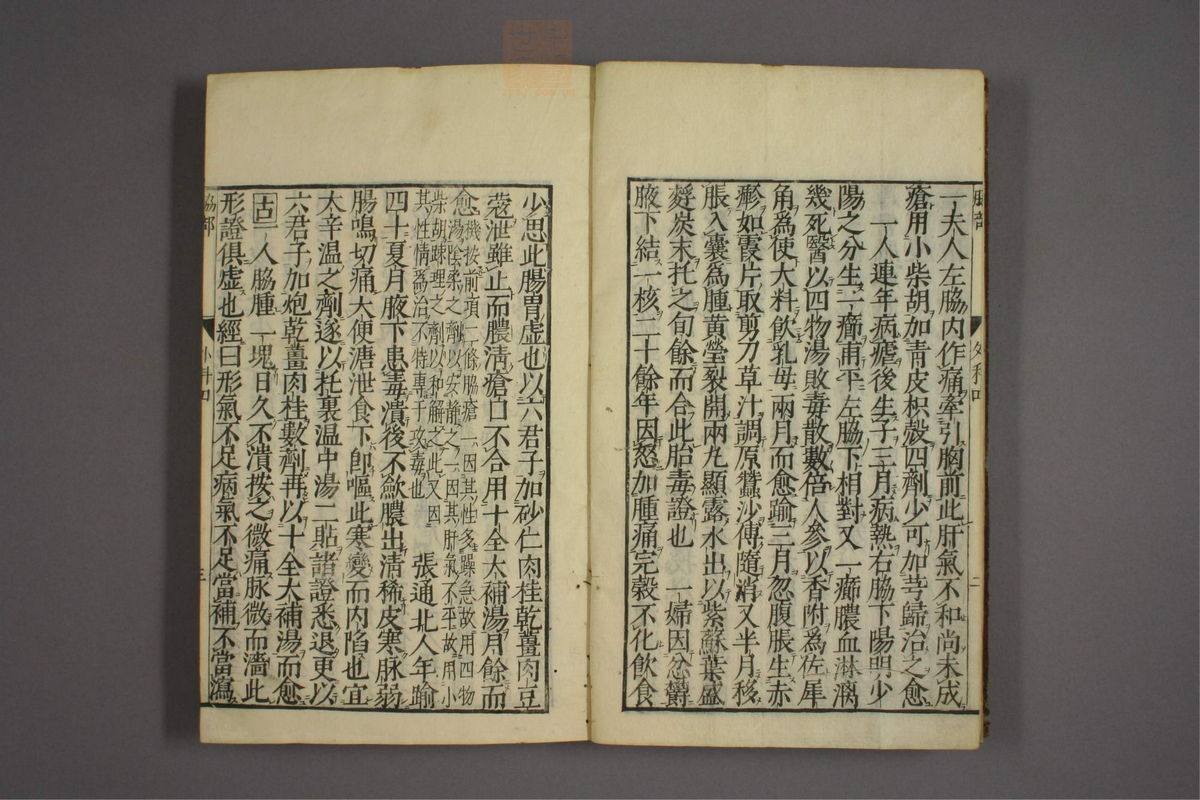 一夫人左脇内作痛牽引胸前此肝氣不和尚未成
瘡用小柴胡加青皮枳殼四劑少可加芎歸治之愈
一人連年病瘧後生子三月病熱右脇下陽明少
陽之分生一癤甫平左脇下相對又一癤膿血淋漓
幾死醫以四物湯敗毒散數倍人參以香附爲佐犀
角爲使大料飲乳母兩月而愈踰三月忽腹脹生赤
瘮如霞片取剪刀草汁調原蠶沙傅隨消又半月移
脹入囊爲腫黄瑩裂開兩丸顯露水出以紫蘇葉盛
麩炭末托之旬餘而合此胎毒證也　一婦因忿鬱
腋下結一核二十餘年因怒加腫痛完穀不化飲食
少思此腸胃虛也以六君子加砂仁肉桂乾薑肉豆
蔻泄雖止而膿淸瘡口不合用十全大補湯月餘而
愈機按前項二條脇瘡一因其性多躁急故用四物
湯陰柔之劑以安靜之一因其肝氣不平故用小
柴胡疎理之劑以和解之此又因
其性情爲治不特專于攻毒也
張通北人年踰
四十夏月腋下患毒潰後不歛膿出清稀皮寒脉弱
腸鳴切痛大便溏泄食下卽嘔此寒變而内陷也宜
大辛温之劑遂以托裏温中湯二貼諸證悉退更以
六君子加炮乾薑肉桂數劑再以十全大補湯而愈
古一人脇腫一塊日久不潰按之微痛脉微而濇此
形證俱虛也經曰形氣不足病氣不足當補不當瀉
脇部
三